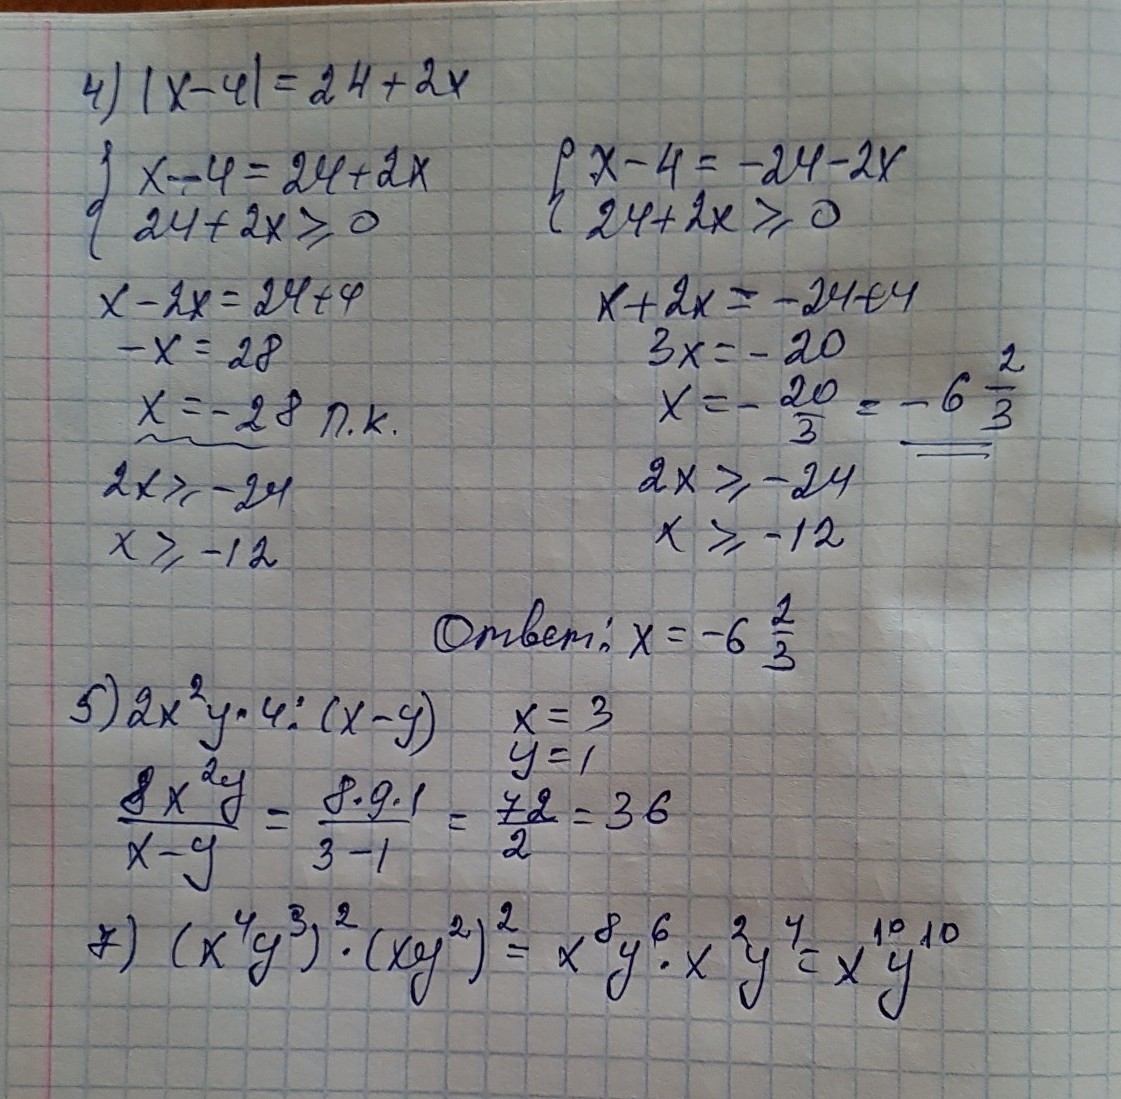 4) |x-4|=24+2x
{ x-4=24+2x
24+2x≥0
x-2x=24+4
-x=28
x=-28 п.к.
2x≥-24
x≥-12
{ x-4=-24-2x
24+2x≥0
x+2x=-24+4
3x=-20
x=-20/3=-6 2/3
2x≥-24
x≥-12
Ответ: x=-6 2/3
5) 2x²y·4:(x-y) x=3
y=1
8x²y/(x-y) = 8·9·1/(3-1) = 72/2 = 36
7) (x⁴y³)²·(xy²)²= x⁸y⁶·x²y⁴=x¹⁰y¹⁰